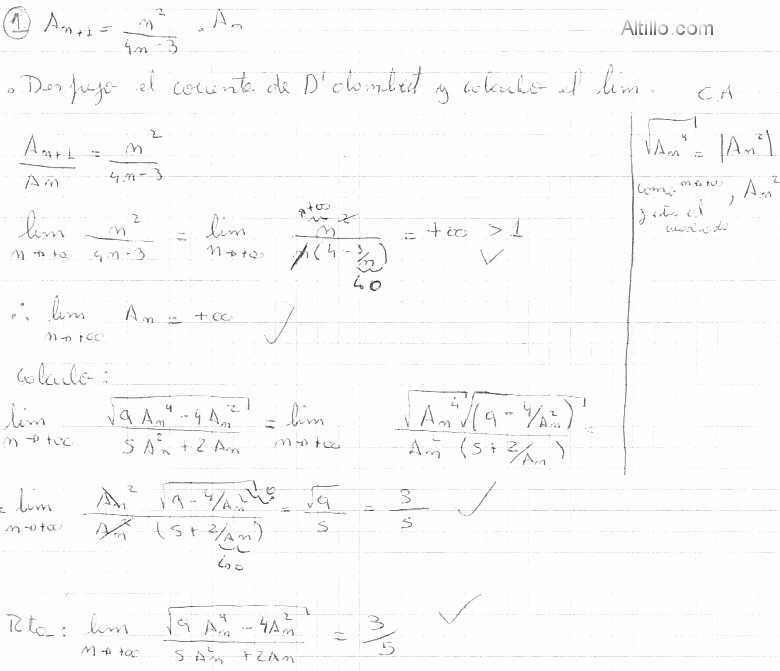 ① A_{n+1} = n²/(4n-3) . A_n
Altillo.com
• Despejo el cociente de D'Alambert y calculo el lim.
C.A
A_{n+1}/A_n = n²/(4n-3)
√(A_n⁴) = |A_n²|
como
está el
cuadrado, A_n²
lim n→+∞ n²/(4n-3) = lim n→+∞ n²/(n(4-3/n)) = +∞ > 1 ✓
+∞
→0
∴ lim n→+∞ A_n = +∞ ✓
Calculo:
lim n→+∞ √(9A_n⁴ - 4A_n²)/(5A_n² + 2A_n) = lim n→+∞ √(A_n⁴)√(9 - 4/A_n²)/(A_n²(5 + 2/A_n)) =
= lim n→+∞ A_n² √(9 - 4/A_n²)/(A_n²(5 + 2/A_n)) = √9/5 = 3/5 ✓
→0
→0
Rta: lim n→+∞ √(9A_n⁴ - 4A_n²)/(5A_n² + 2A_n) = 3/5 ✓